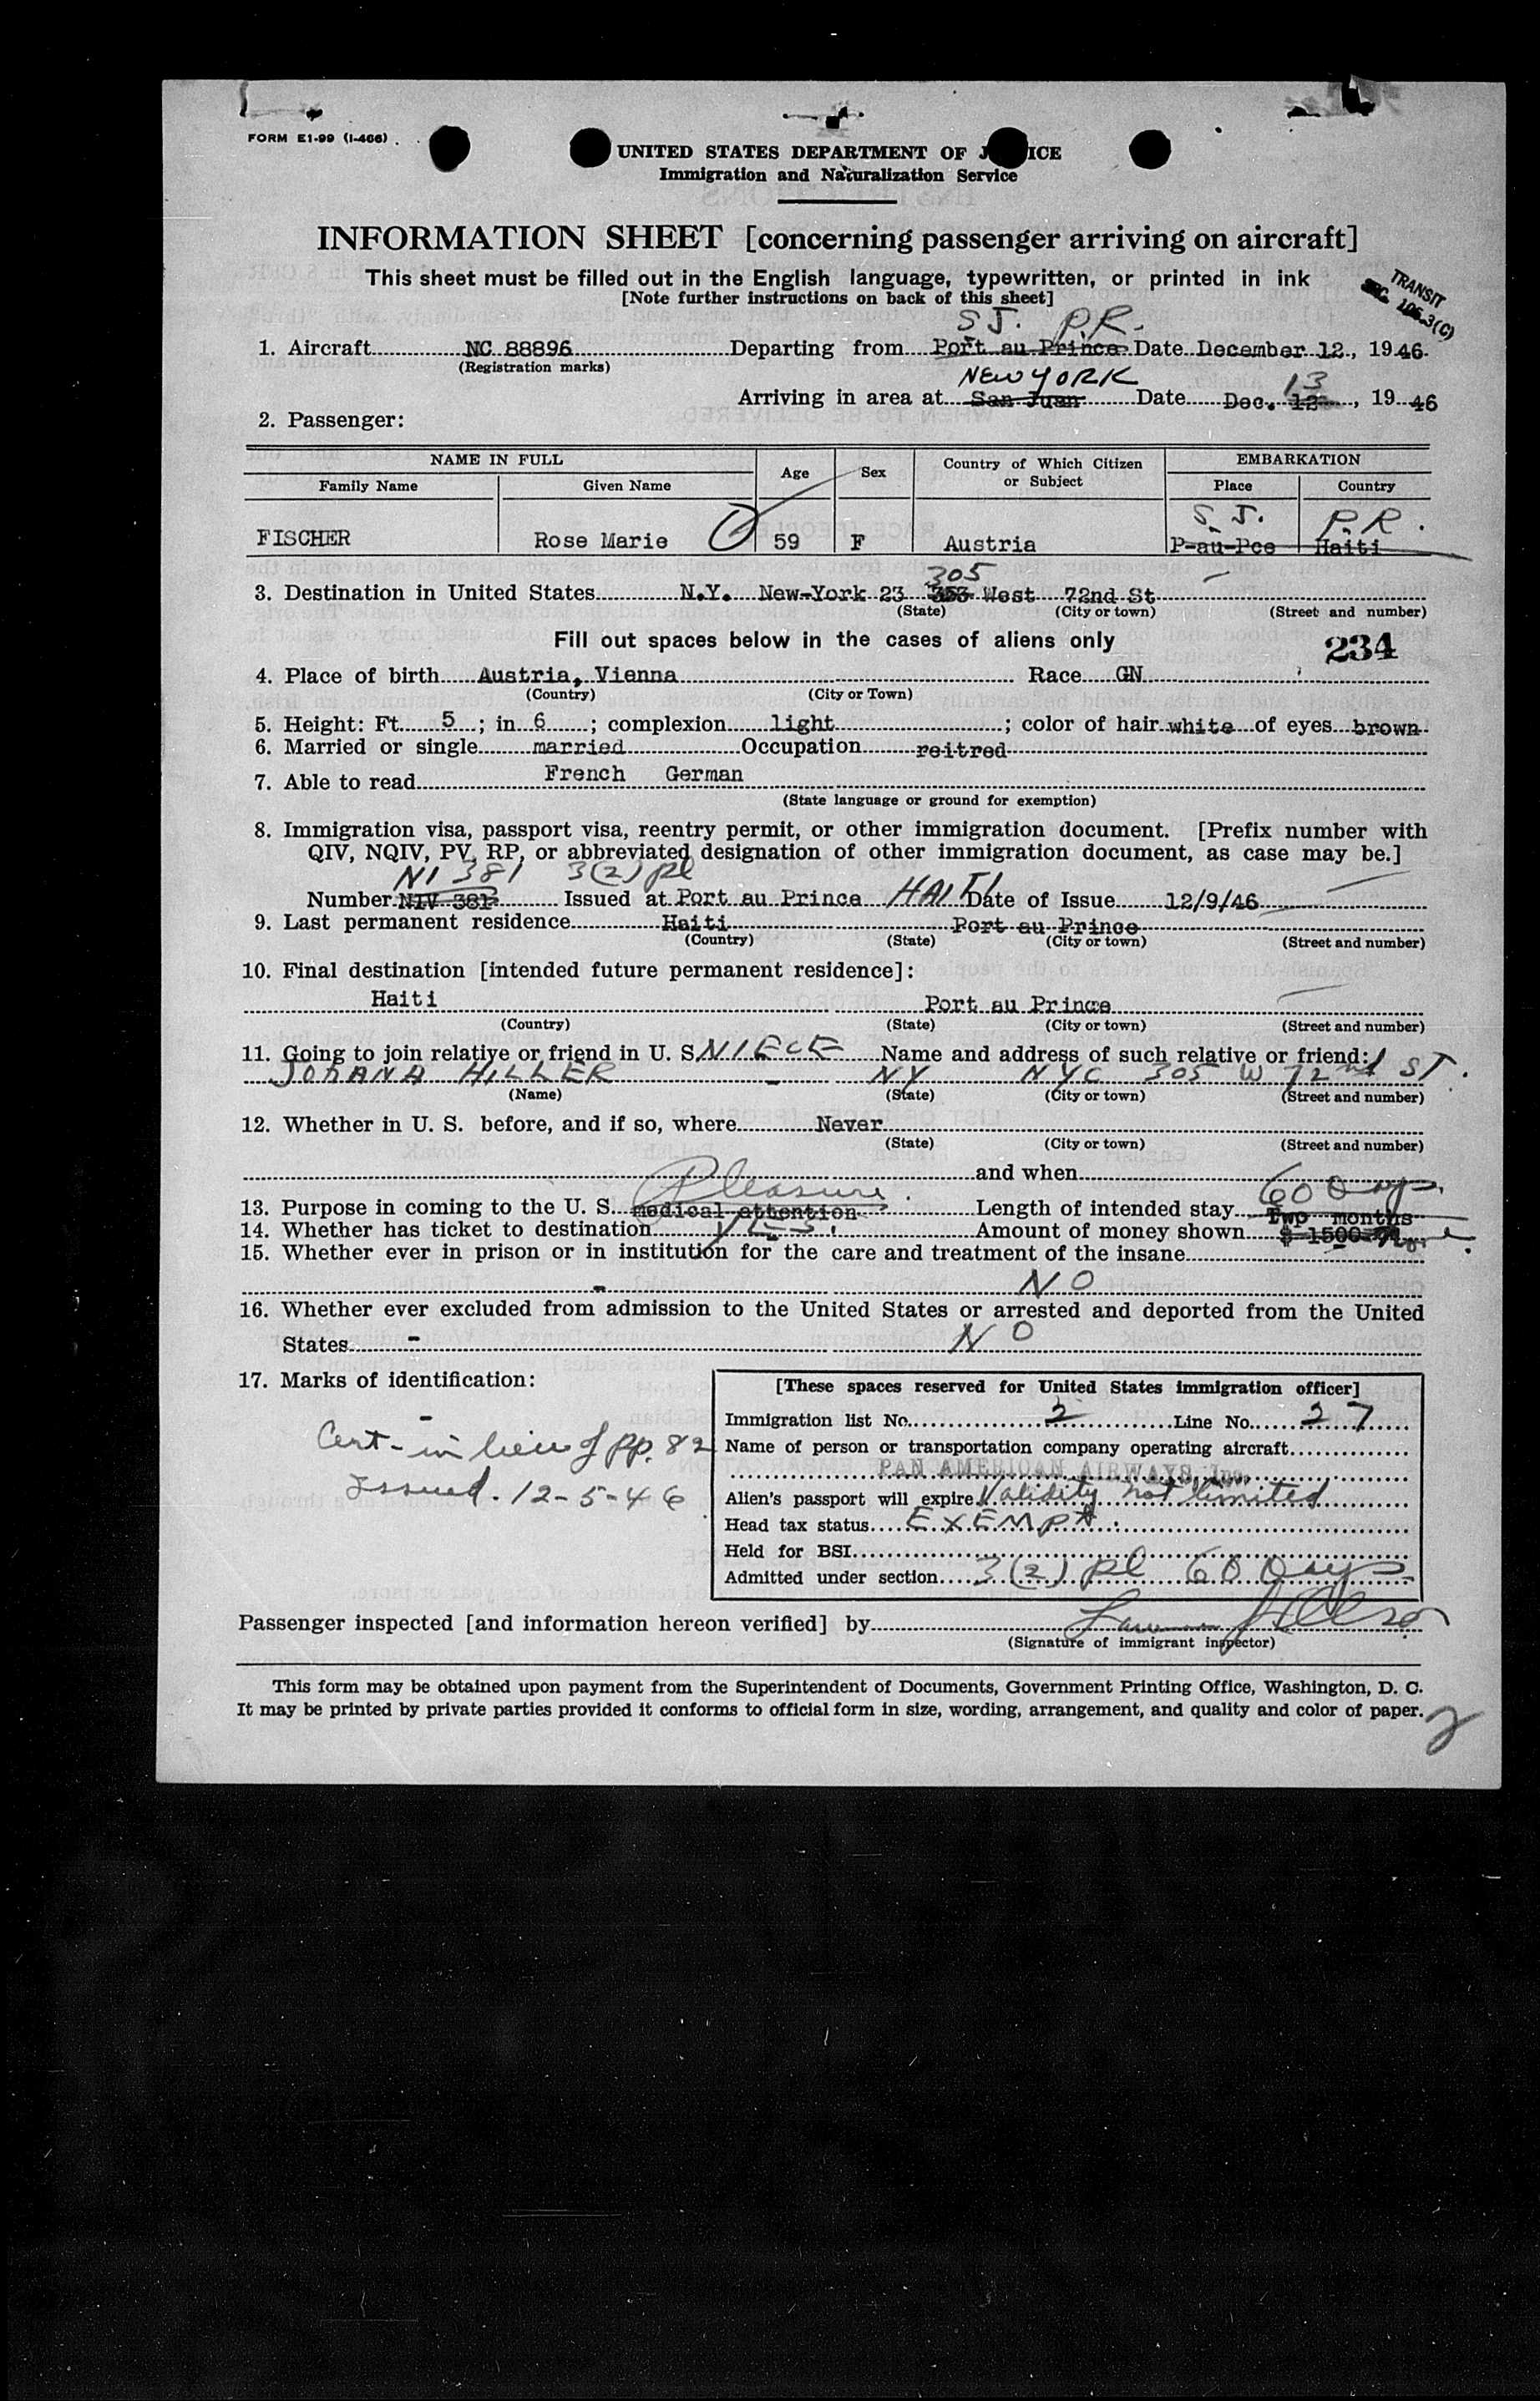 FORM E1-99 (I-466)
UNITED STATES DEPARTMENT OF J ICE
Immigration and Naturalization Service
INFORMATION SHEET [concerning passenger arriving on aircraft]
This sheet must be filled out in the English language, typewritten, or printed in ink
[Note further instructions on back of this sheet]
TRANSIT
SEC 106.3(C)
S.J. P.R.
1. Aircraft NC 88896 Departing from Port au Prince Date December 12, 1946
(Registration marks)
NEW YORK 13
Arriving in area at San Juan Date Dec. 12, 1946
2. Passenger:
NAME IN FULL Age Sex Country of Which Citizen or Subject EMBARKATION
Family Name Given Name Place Country
S.J. P.R.
FISCHER Rose Marie 59 F Austria P-au-Pce Haiti
305
3. Destination in United States N.Y. New-York 23 353 West 72nd St
(State) (City or town) (Street and number)
Fill out spaces below in the cases of aliens only 234
4. Place of birth Austria, Vienna Race GN
(Country) (City or Town)
5. Height: Ft. 5; in 6; complexion light; color of hair white of eyes brown
6. Married or single married Occupation reitred
7. Able to read French German
(State language or ground for exemption)
8. Immigration visa, passport visa, reentry permit, or other immigration document. [Prefix number with
QIV, NQIV, PV, RP, or abbreviated designation of other immigration document, as case may be.]
NI 381 3(2) pl
Number NIV 381 Issued at Port au Prince HAITI Date of Issue 12/9/46
9. Last permanent residence Haiti Port au Prince
(Country) (State) (City or town) (Street and number)
10. Final destination [intended future permanent residence]:
Haiti Port au Prince
(Country) (State) (City or town) (Street and number)
11. Going to join relative or friend in U. S. NIECE Name and address of such relative or friend:
JOHANA HILLER NY NYC 305 W 72nd ST.
(Name) (State) (City or town) (Street and number)
12. Whether in U. S. before, and if so, where Never
(State) (City or town) (Street and number)
and when
Pleasure. 60 Days
13. Purpose in coming to the U. S. medical attention Length of intended stay Two months
14. Whether has ticket to destination YES. Amount of money shown $ 1500
15. Whether ever in prison or in institution for the care and treatment of the insane
- NO
16. Whether ever excluded from admission to the United States or arrested and deported from the United
States - NO
17. Marks of identification:
-
Cert - in lieu of pp. 82
Issued. 12-5-46
[These spaces reserved for United States immigration officer]
Immigration list No. 2 Line No. 27
Name of person or transportation company operating aircraft
PAN AMERICAN AIRWAYS, Inc.
Alien's passport will expire Validity not limited
Head tax status EXEMPT.
Held for BSI
Admitted under section 3(2) pl 60 Days
Passenger inspected [and information hereon verified] by
(Signature of immigrant inspector)
This form may be obtained upon payment from the Superintendent of Documents, Government Printing Office, Washington, D. C.
It may be printed by private parties provided it conforms to official form in size, wording, arrangement, and quality and color of paper.
2